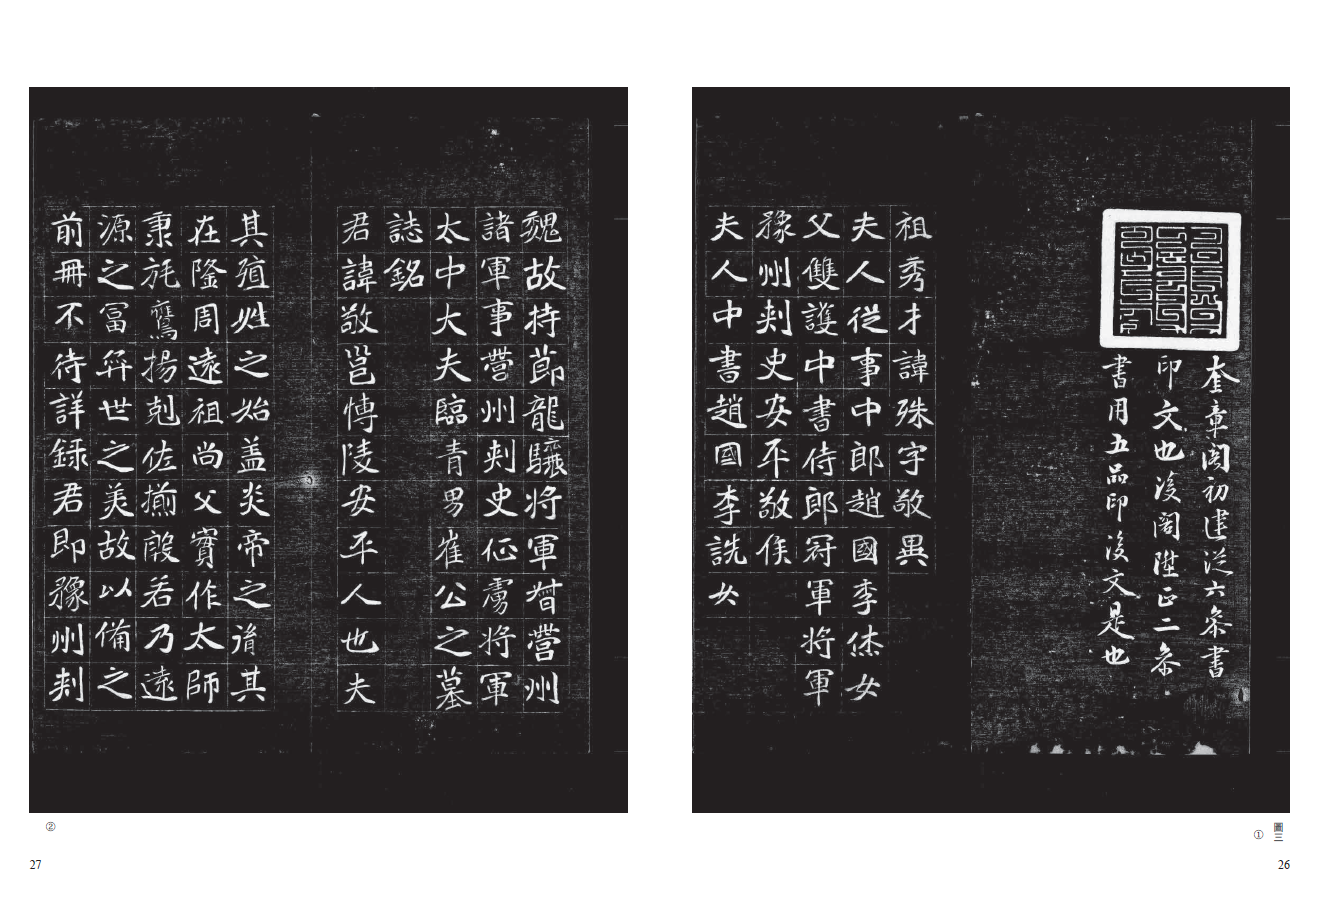 奎章閣初建從六叅書
印文也後閣陞正二叅
書用五品印後文是也
祖秀才諱殊字敬異
夫人從事中郎趙國李烋女
父雙護中書侍郎冠軍将軍
豫州刾史安平敬侯
夫人中書趙國李詵女
圖三
①
26
魏故持節龍驤将軍督營州
諸軍事營州刾史征虜将軍
太中大夫臨青男崔公之墓
誌銘
君諱敬邕博陵安平人也夫
其殖姓之始盖炎帝之胄其
在隆周遠祖尚父實作太師
秉旄鷹揚剋佐揃殷若乃遠
源之富弈世之美故以備之
前冊不待詳録君即豫州刾
②
27